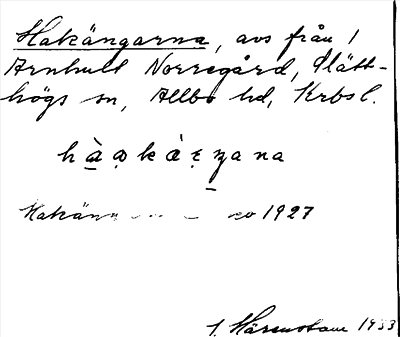 Hakängarna, avs från 1
Arnhult Norregård, Slätt-
högs sn, Allbo hd, Krbsl.
hàọkàẹzana
Hakäng 1927
J. Härenstam 1933